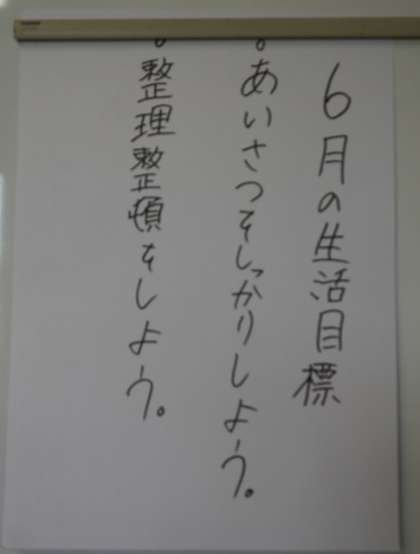 6月の生活目標
。あいさつをしっかりしよう。
。整理整頓をしよう。